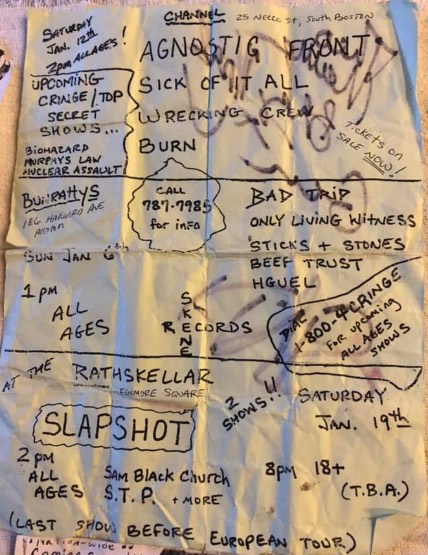 SATURDAY
JAN. 12th
2PM ALL AGES!
CHANNEL 25 Necco St, South Boston
AGNOSTIG FRONT
SICK OF IT ALL
WRECKING CREW
BURN
Tickets on
SALE NOW!
UPCOMING
CRINGE/TOP
SECRET
SHOWS...
BIOHAZARD
MURPHYS LAW
NUCLEAR ASSAULT
BUNRATTYS
186 HARVARD AVE
Allston
CALL
787-7985
for info
SUN JAN 6th
1pm
ALL
AGES
BAD TRIP
ONLY LIVING WITNESS
STICKS + STONES
BEEF TRUST
HGUEL
SKENE
RECORDS
DIAL
1-800-4CRINGE
For upcoming
ALL AGES
SHOWS
AT THE RATHSKELLAR
KENMORE SQUARE
2
SHOWS!!
SATURDAY
JAN. 19th
SLAPSHOT
2pm
ALL
AGES
SAM BLACK CHURCH
S.T.P. + MORE
8pm 18+
(T.B.A.)
(LAST SHOW BEFORE EUROPEAN TOUR)